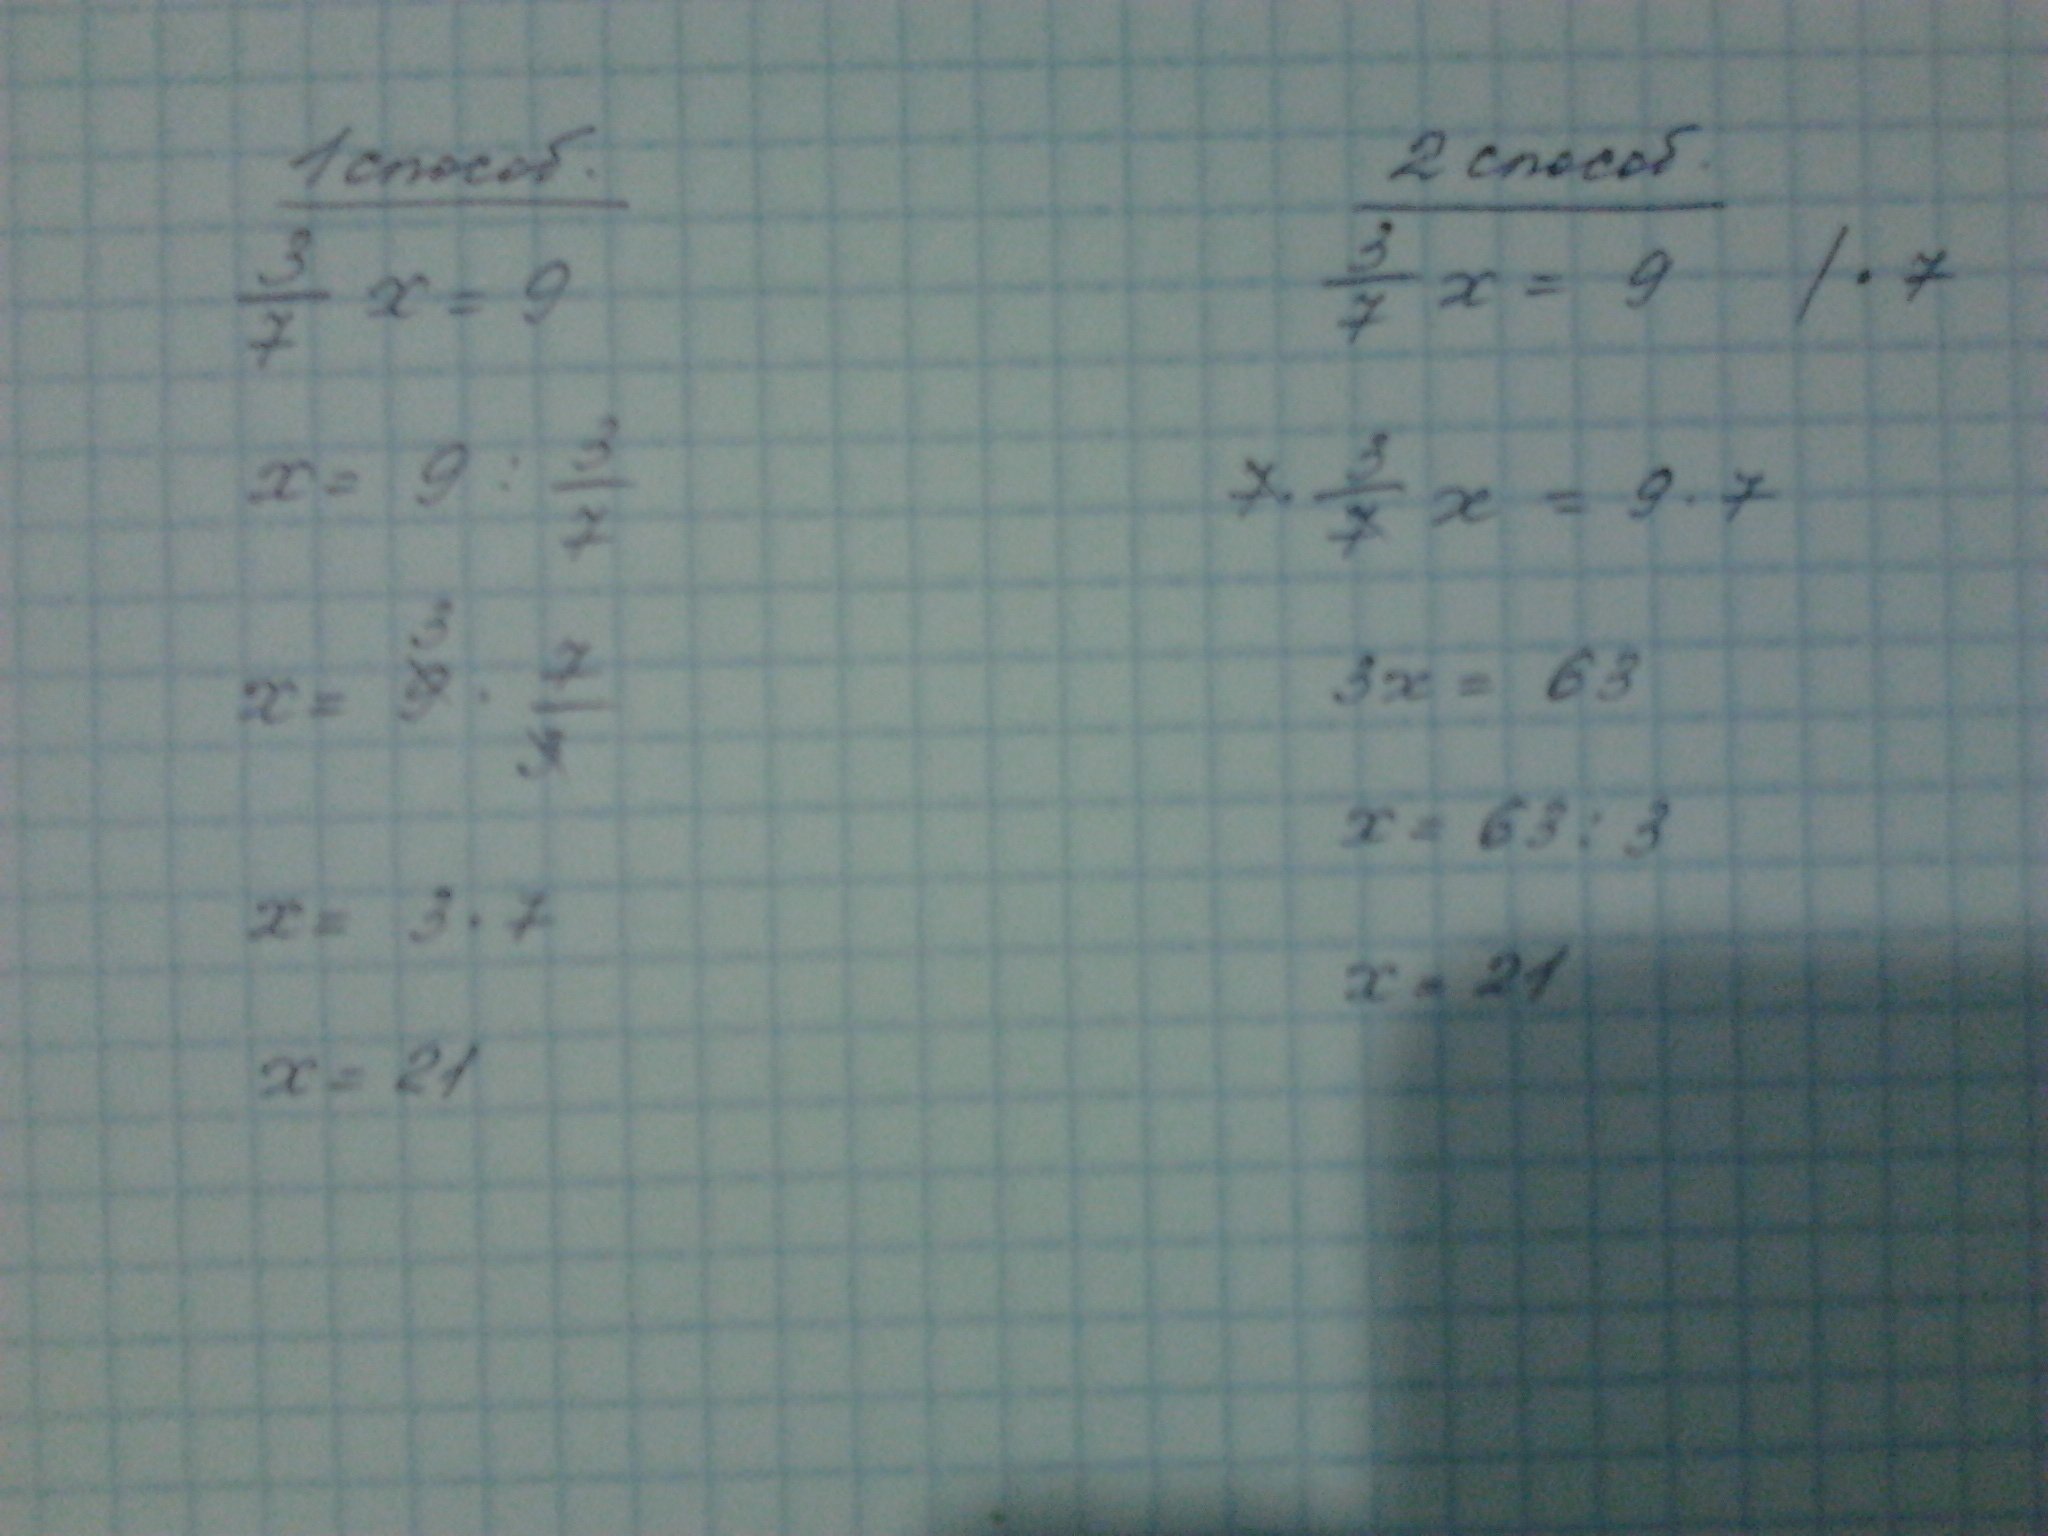 1 способ.
3/7 x = 9
x = 9 : 3/7
x = 9 3 · 7/3
x = 3 · 7
x = 21
2 способ.
3/7 x = 9 / · 7
7 · 3/7 x = 9 · 7
3x = 63
x = 63 : 3
x = 21